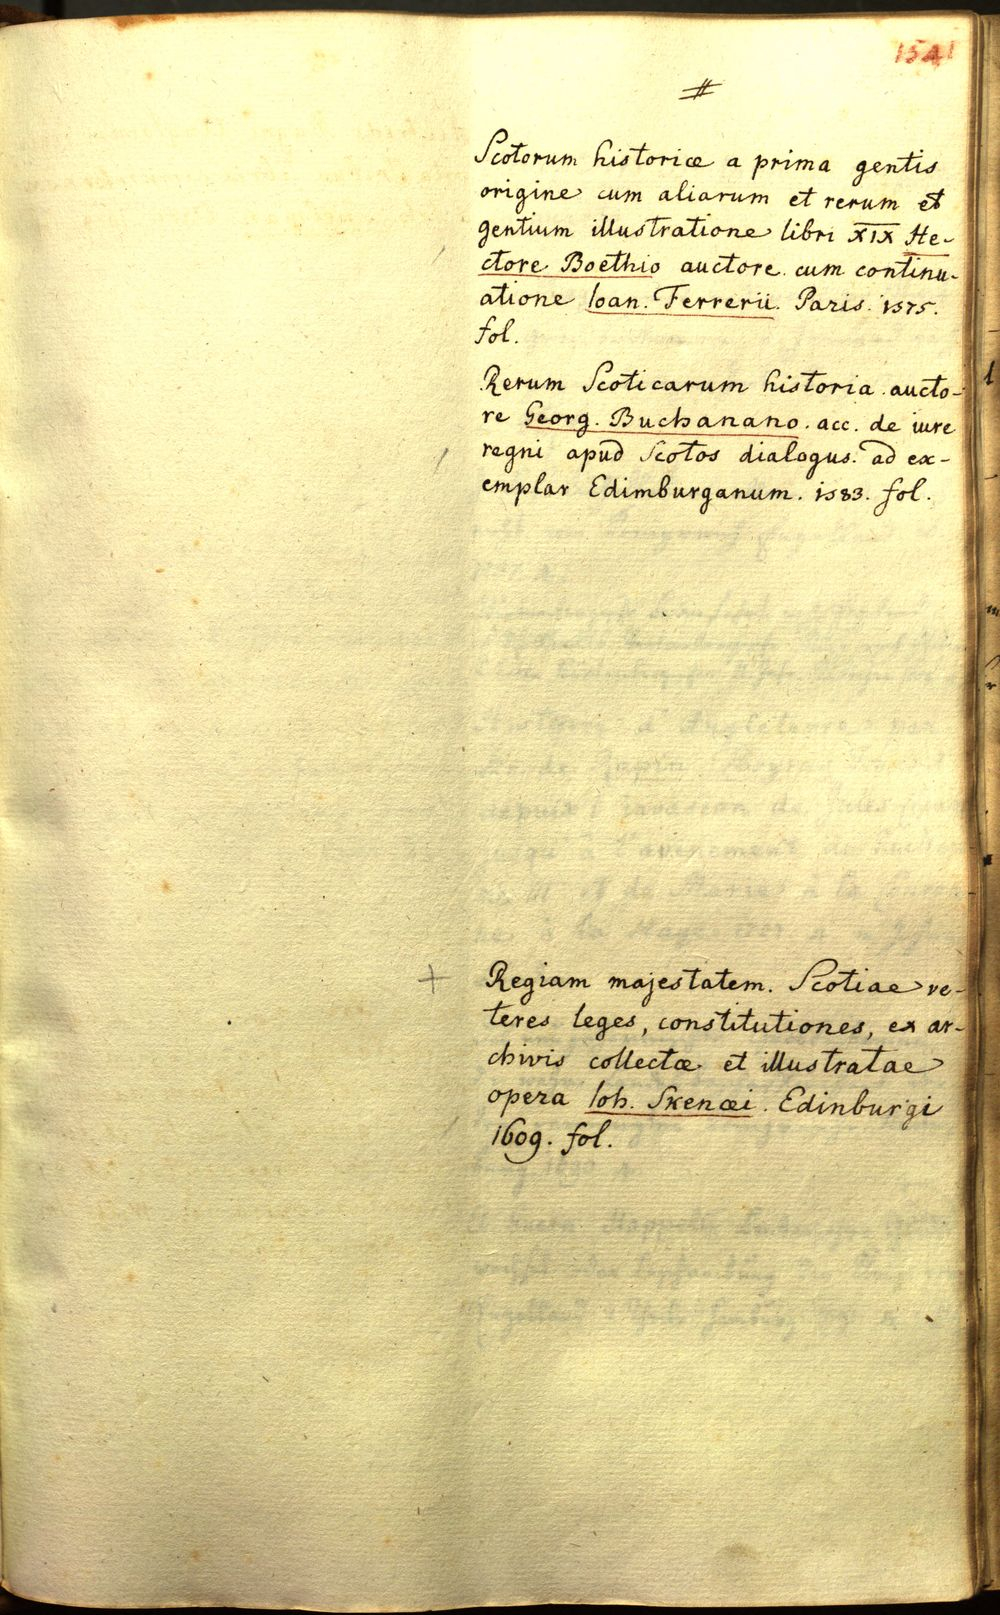 1541
#
Scotorum historiæ a prima gentis
origine cum aliarum et rerum et
gentium illustratione libri XIX He-
ctore Boethio auctore cum continu-
atione Ioan. Ferrerii. Paris. 1575.
fol.
Rerum Scoticarum historia aucto-
re Georg. Buchanano. acc. de iure
regni apud Scotos dialogus. ad ex-
emplar Edimburganum. 1583. fol.
+ Regiam majestatem. Scotiae ve-
teres leges, constitutiones, ex ar-
chivis collectæ et illustratae
opera Ioh. Skenæi. Edinburgi
1609. fol.